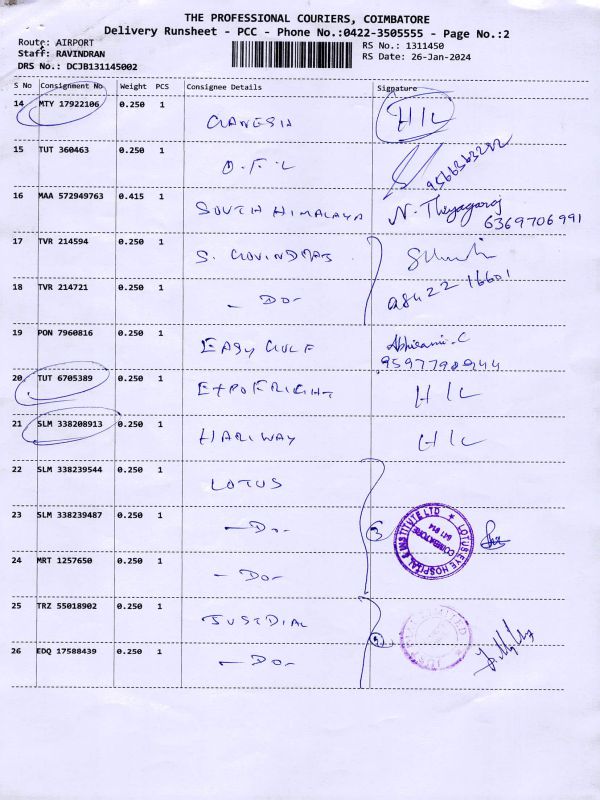 THE PROFESSIONAL COURIERS, COIMBATORE
Delivery Runsheet - PCC - Phone No.:0422-3505555 - Page No.:2
Route: AIRPORT
Staff: RAVINDRAN
DRS No.: DCJB131145002
RS No.: 1311450
RS Date: 26-Jan-2024
S No Consignment No Weight PCS Consignee Details Signature
14 MTY 17922106 0.250 1 GANESH H/L
15 TUT 360463 0.250 1 O.F.L 9566363292
16 MAA 572949763 0.415 1 SOUTH HIMALAYA N. Thyagaraj 6369706991
17 TVR 214594 0.250 1 S. GOVINDDAS
18 TVR 214721 0.250 1 - DO - 98422 16601
19 PON 7960816 0.250 1 EASY GULF Abhirami.C
20 TUT 6705389 0.250 1 EXPOFRIGHT H/L
21 SLM 338208913 0.250 1 HARIWAY H/L
22 SLM 338239544 0.250 1 LOTUS
23 SLM 338239487 0.250 1 - DO - 3 LOTUS EYE HOSPITAL & INSTITUTE LTD COIMBATORE 641 014
24 MRT 1257650 0.250 1 - DO -
25 TRZ 55018902 0.250 1 JUSTDIAL
26 EDQ 17588439 0.250 1 - DO - 2